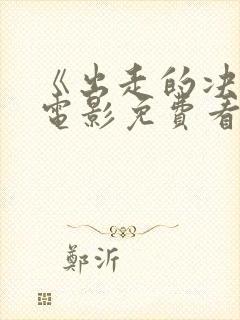 《出走的决
電影免費看
鄭沂